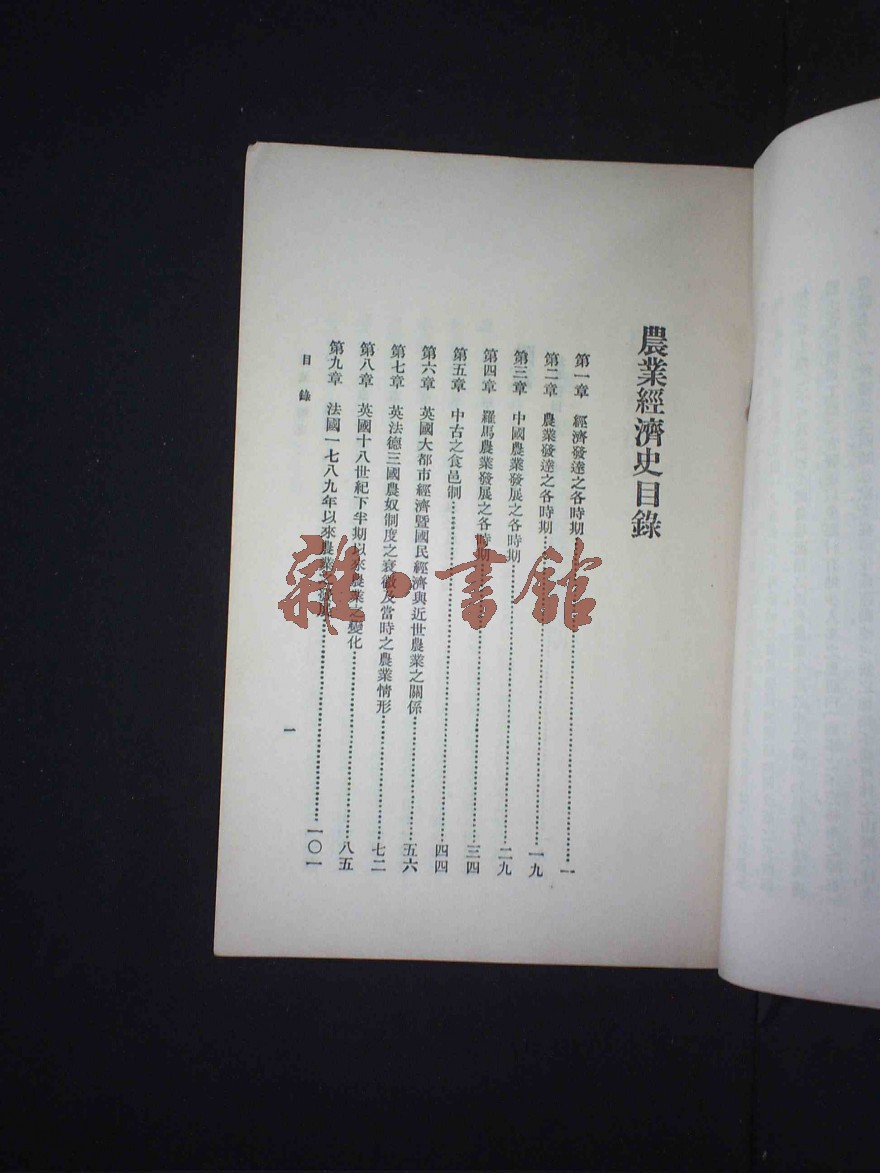 農業經濟史目錄
第一章　經濟發達之各時期……一
第二章　農業發達之各時期……一九
第三章　中國農業發展之各時期……二九
第四章　羅馬農業發展之各時期……三四
第五章　中古之食邑制……四四
第六章　英國大都市經濟暨國民經濟與近世農業之關係……五六
第七章　英法德三國農奴制度之衰微及當時之農業情形……七二
第八章　英國十八世紀下半期以來農業之變化……八五
第九章　法國一七八九年以來農業之發展……一〇一
目錄
一
雜·書館